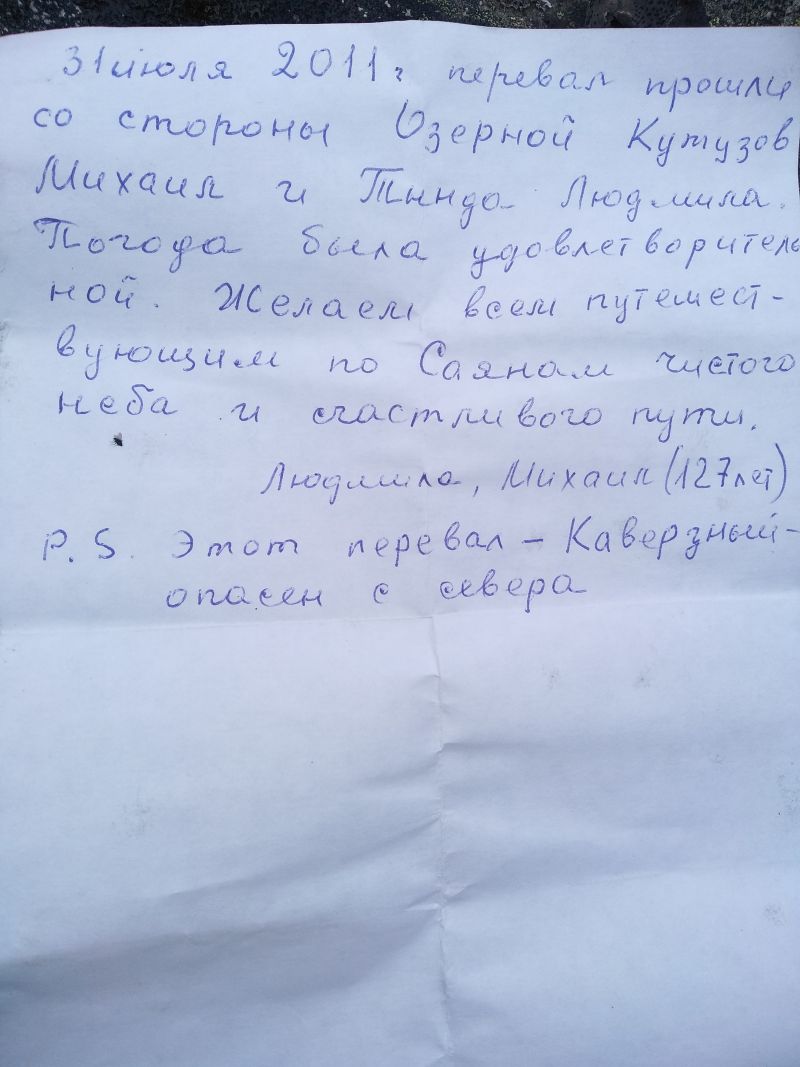 31 июля 2011 г перевал прошли
со стороны Озерной Кутузов
Михаил и Тында Людмила.
Погода была удовлетворитель
ной. Желаем всем путешест-
вующим по Саянам чистого
неба и счастливого пути.
Людмила, Михаил (127 лет)
P. S. Этот перевал – Каверзный -
опасен с севера